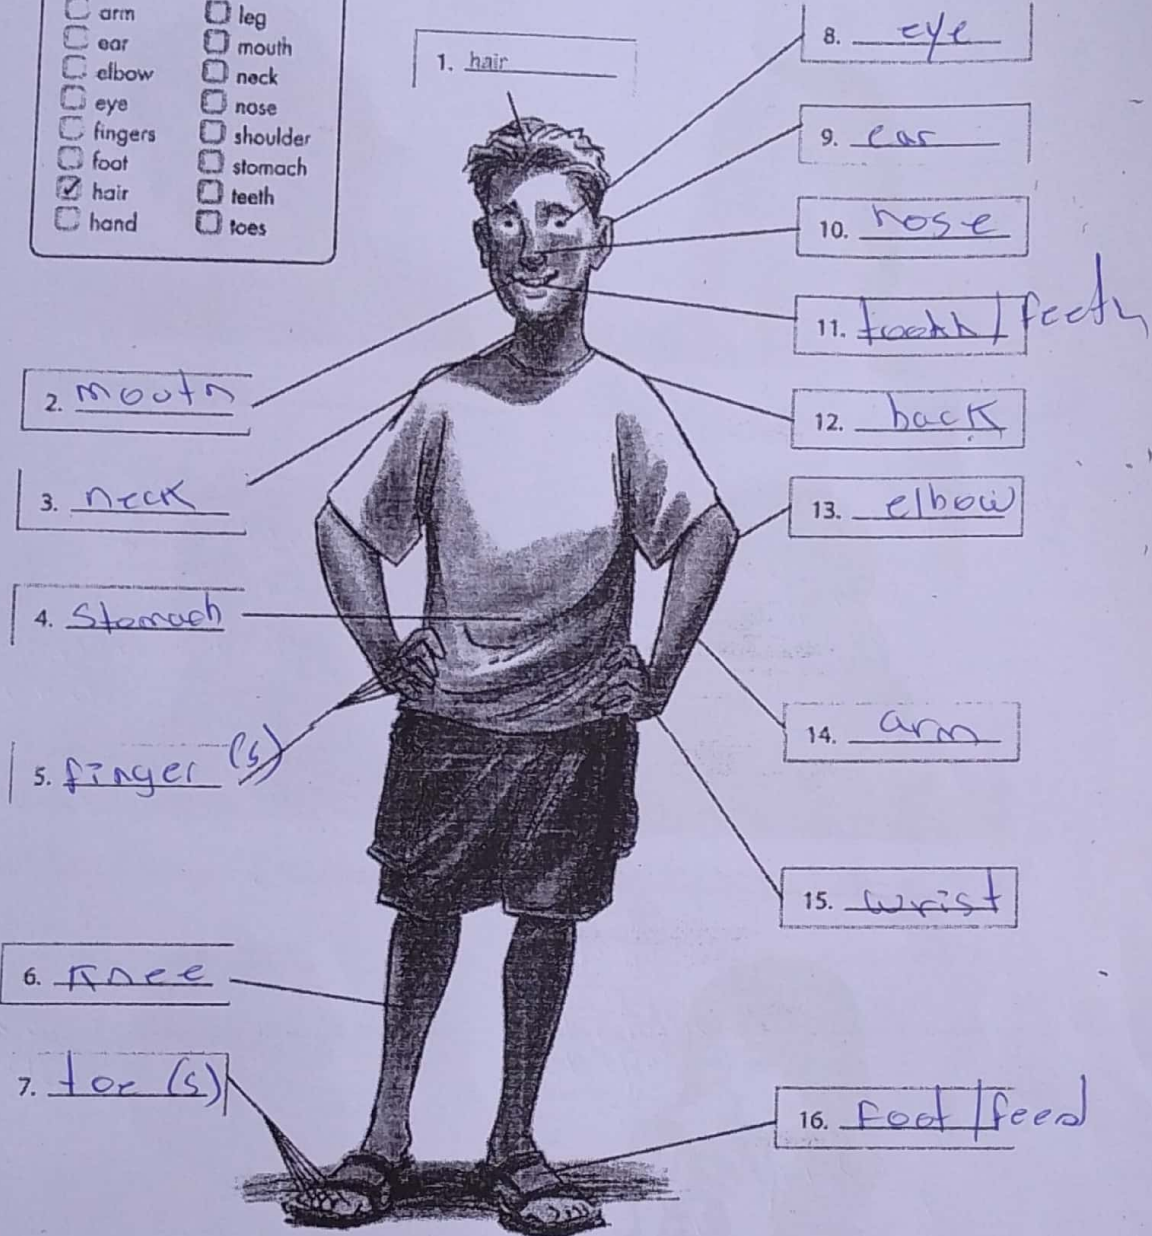 arm
ear
elbow
eye
fingers
foot
hair
hand
leg
mouth
neck
nose
shoulder
stomach
teeth
toes
1. hair
2. mouth
3. neck
4. Stomach
5. finger (s)
6. Knee
7. toe (s)
8. eye
9. ear
10. nose
11. tooth / feeth
12. back
13. elbow
14. arm
15. wrist
16. Foot / feed